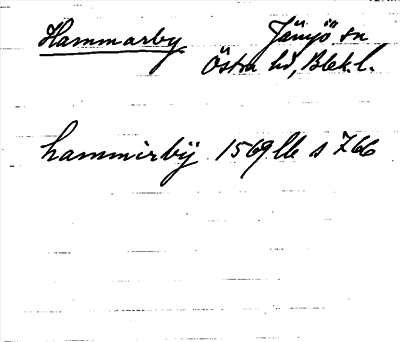 Hammarby Jämjö sn
Östra hd, Blek. l.
hammirbÿ 1569 lb s 766